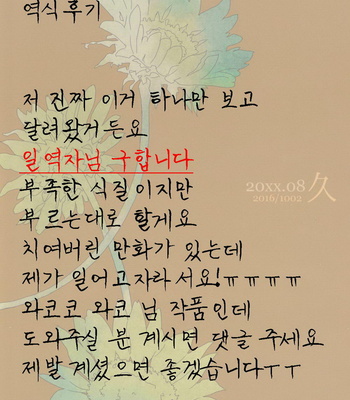 역식후기
저 진짜 이거 타나만 보고
달려왔거든요
일역자님 구합니다
부족한 식질이지만
부르는대로 할게요
20xx.08 久
2016/1002
치여버린 만화가 있는데
제가 일어고자라서요!ㅠㅠㅠㅠ
와코코 와코 님 작품인데
도와주실 분 계시면 댓글 주세요
제발 계셨으면 좋겠습니다ㅜㅜ